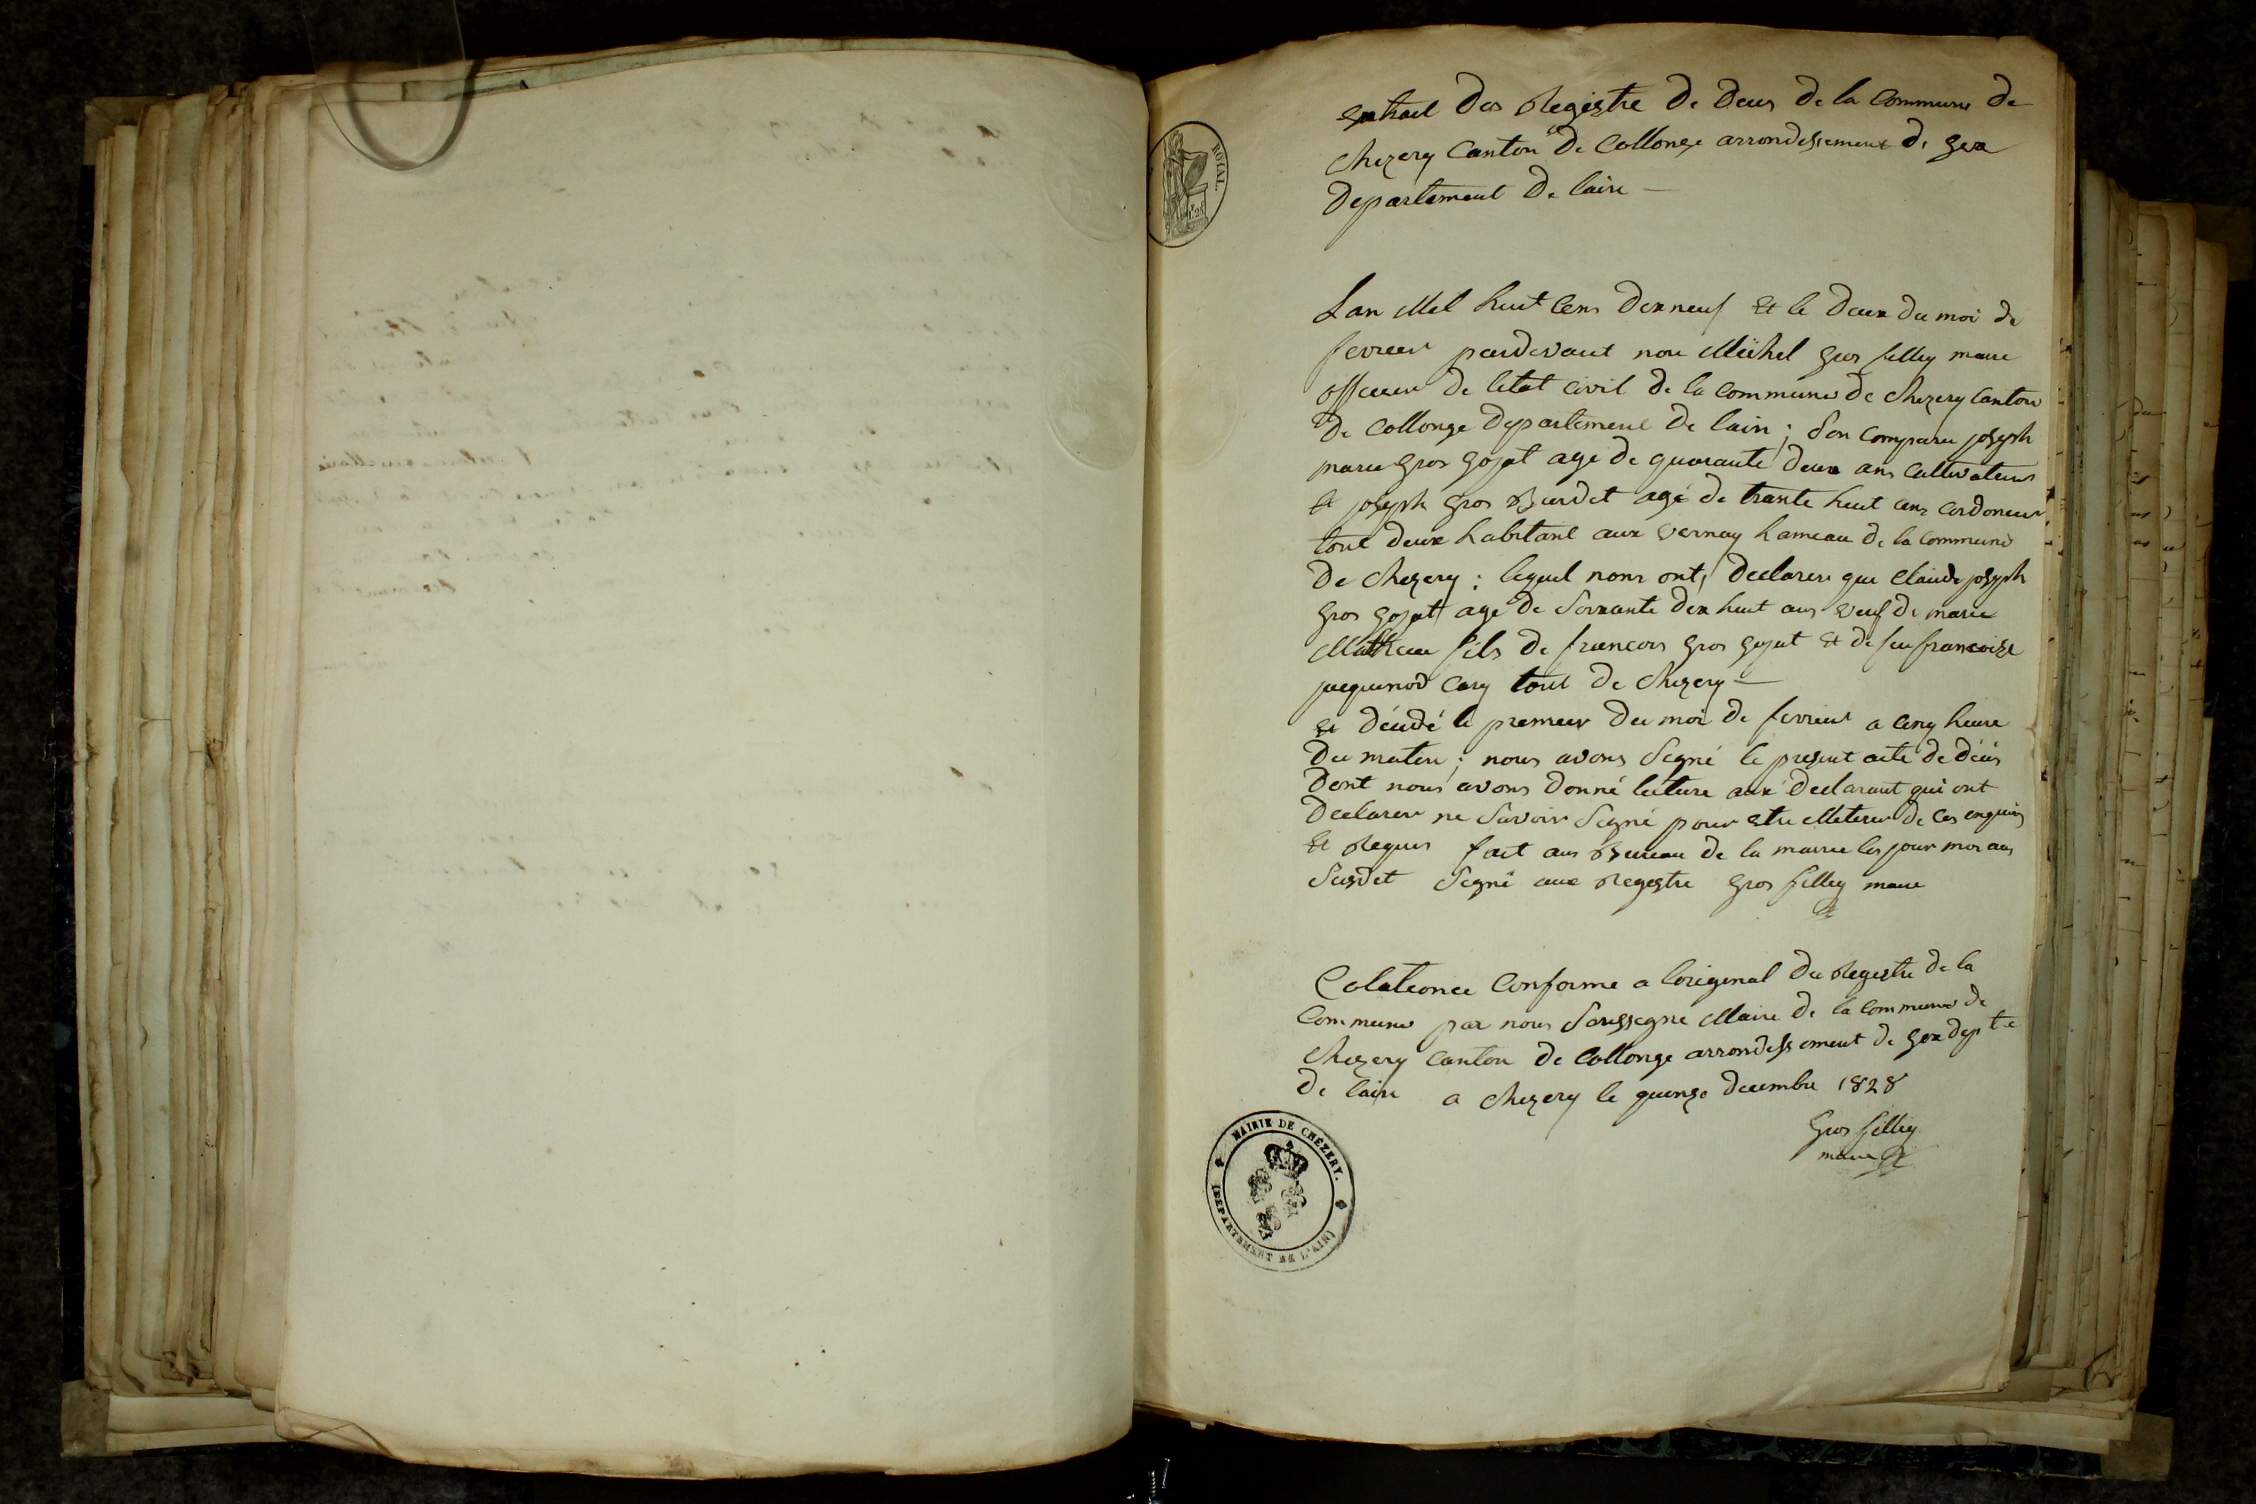 extrait des Registre de deces de la Commune de
chezery Canton de Collonge arrondissement de gex
departement de lain
ROYAL
Lan Mil huit Cens dexneuf Et le deux du moi de
fevrier pardevant nou Michel gros filley maire
officier de letat civil de la commune de chezery Canton
de Collonge departement de lain ; Son comparu joseph
marie gros gojat age de quarante deux ans Cultivateur
Et joseph gros Burdet agé de trante huit ans Cordoneur
tout deux habitant aux vernay hameau de la commune
de chezery : lequel nous ont declarer que Claude joseph
gros gojat age de Soixante dix huit ans veuf de marie
Mathieu fils de francois gros gojat Et de feu francoise
juequinod Cary tout de chezery
Et décédé le premier du moi de fevrier a Cinq heure
du matin ; nous avons Signé le present acte de décés
dont nous avons donné lecture aux declarant qui ont
declarer ne Savoir Signé pour etre de Ces enquis
Et Requis fait au Bureau de la mairie les jour moi ans
Susdit Signé aux Registre gros filley maire
Colationée Conforme a loriginal du Registre de la
Commune par nous Soussigné Maire de la Commune de
chezery canton de Collonge arrondissement de gex depte
de lain a chezery le quinze decembre 1828
gros filley
maire
MAIRIE DE CHÉZERY.
(DÉPARTEMENT DE L'AIN)